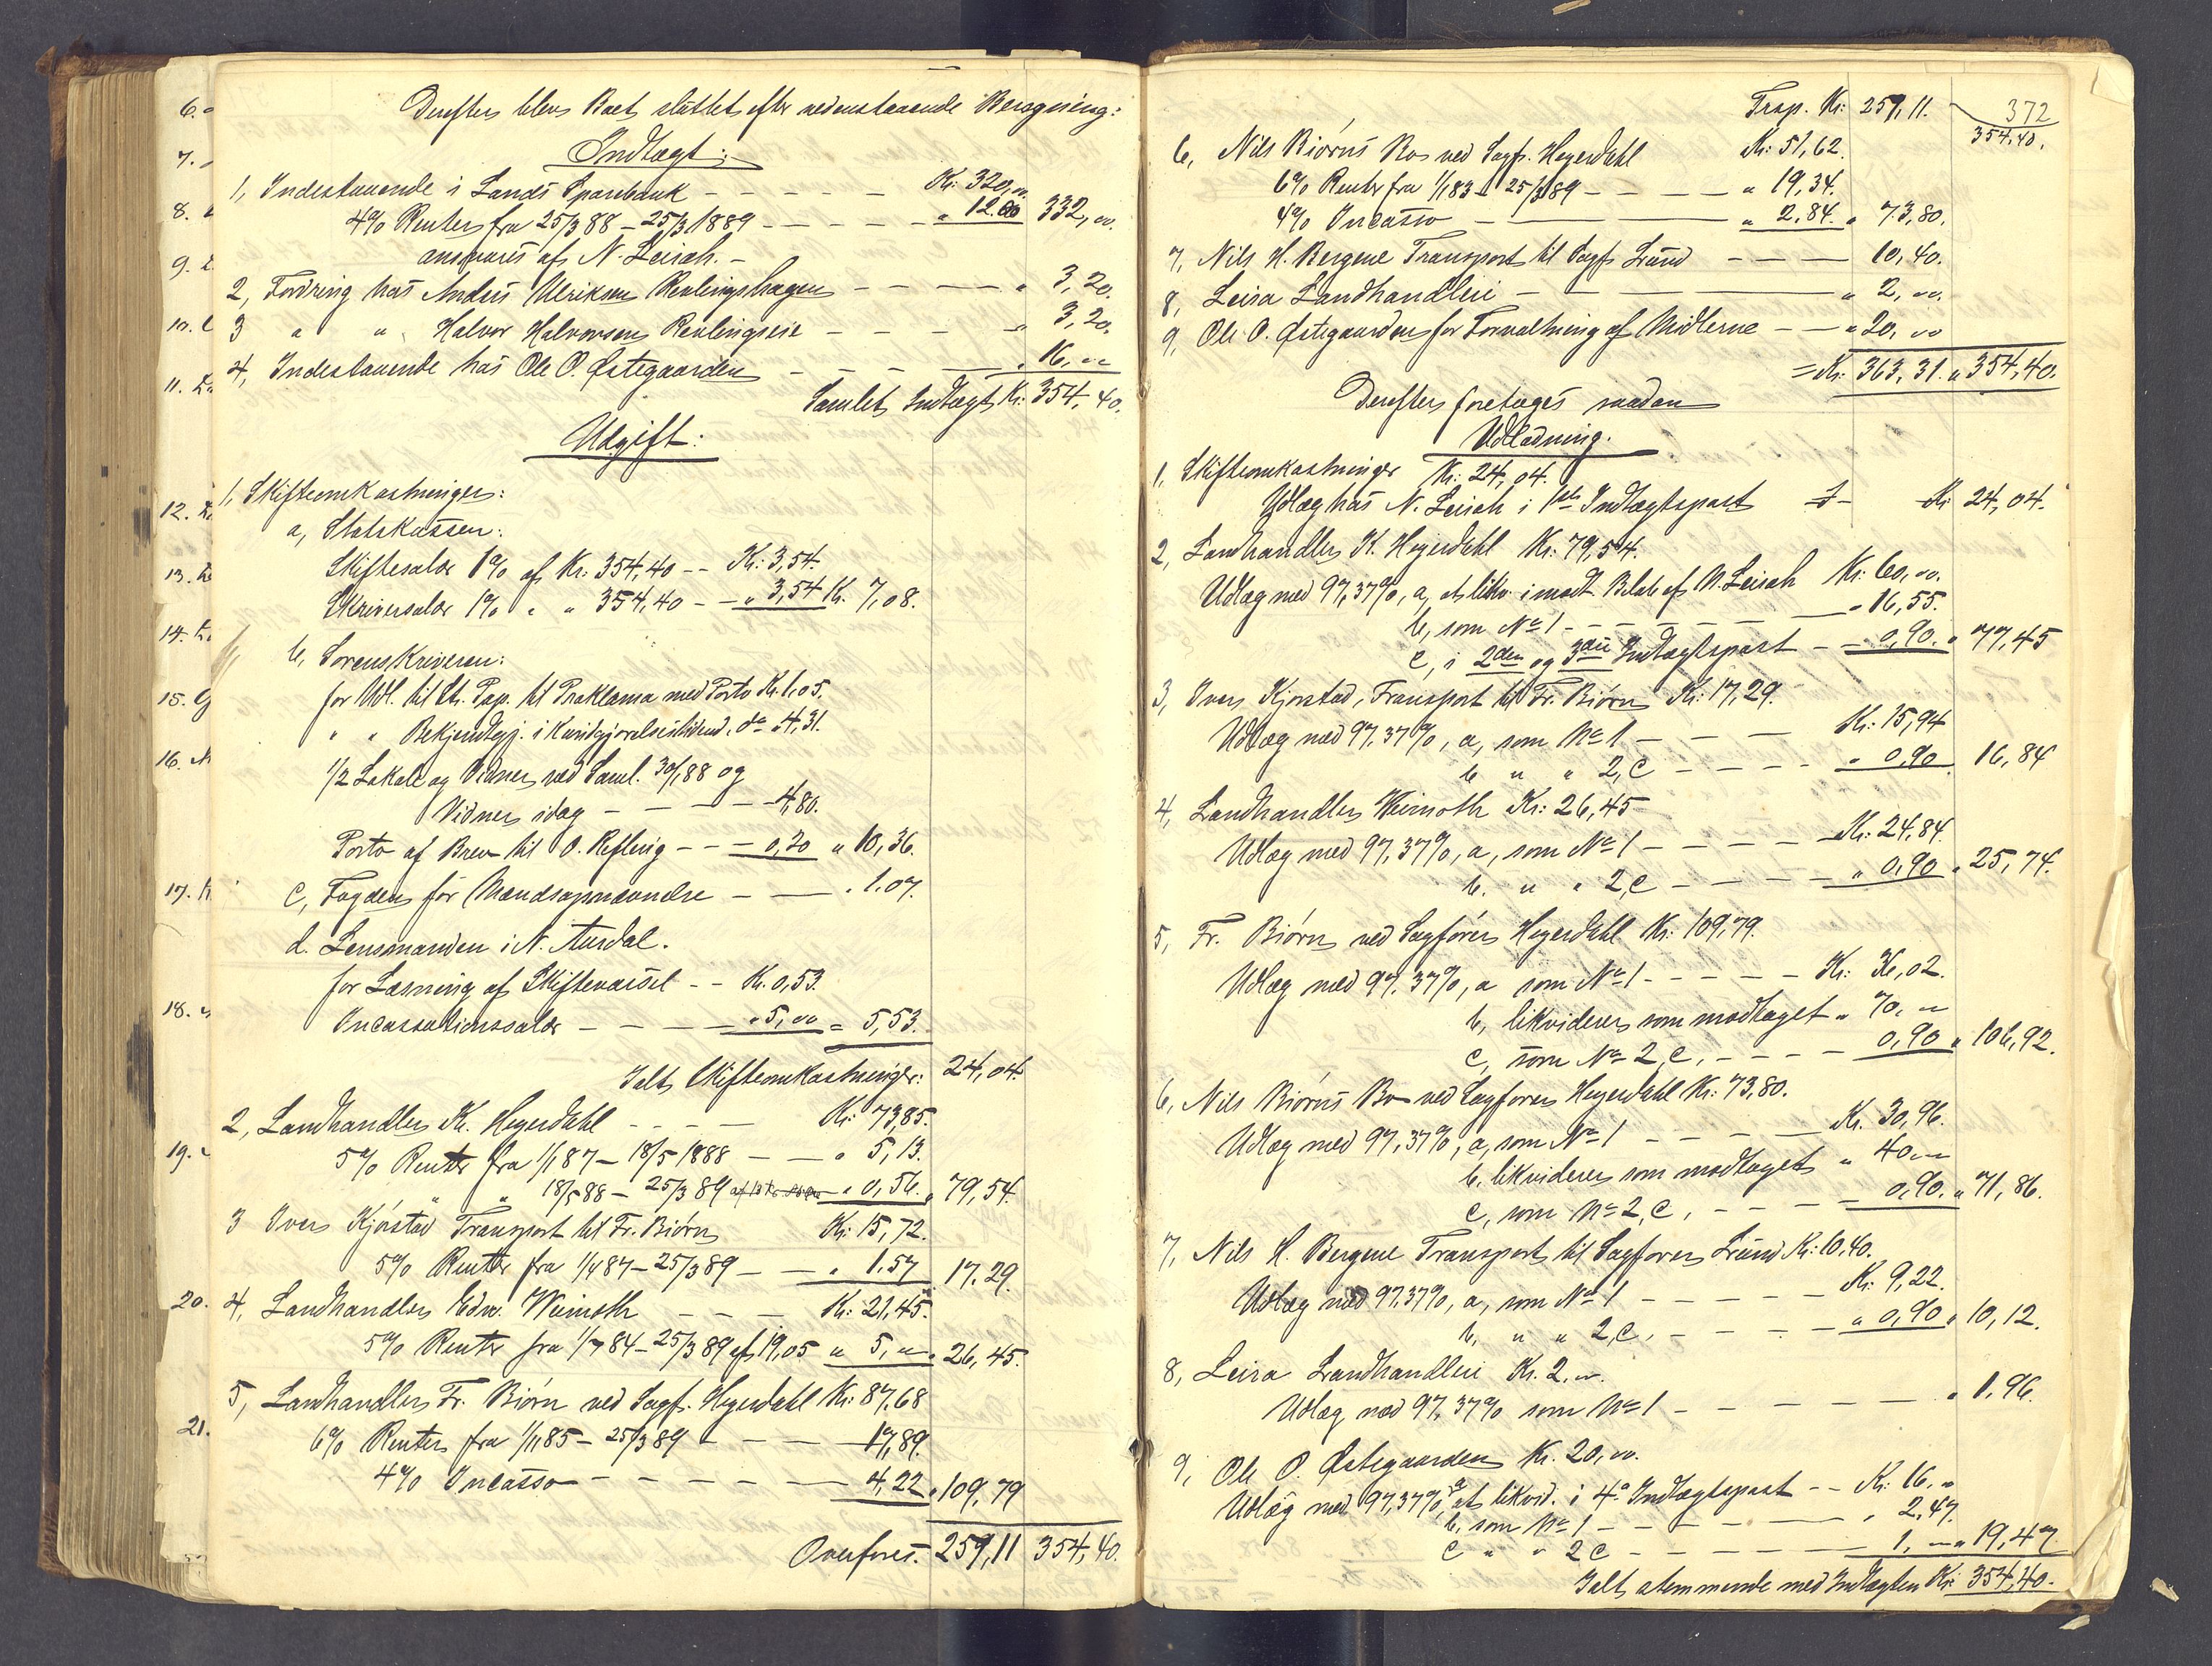 Derefter blev Boet sluttet efter nedenstaaende Beregning:
Indtægt:
1, Indestaaende i Lands Sparebank - - - - - Kr: 320,00
4% Renter fra 25/3 88 - 25/3 1889 - - - - - " 12.00 332,00.
ansvares af N. Leirah. -
2, Fordring hos Anders Ulriksen Reulingshagen - - - - " 3,20.
3 " " Halvor Halvorsen Reulingseie - - - - " 3,20.
4, Indestaaende hos Ole O. Østegaarden - - - - " 16,00
Samlet Indtægt Kr: 354,40.
Udgift:
1, Skifteomkostninger:
a, Statskassen:
Skiftesalær 1% af Kr: 354,40 - - Kr: 3,54.
Skriversalær 1% " " 354,40 - - " 3,54 Kr. 7,08.
b, Sorenskriveren:
for Udl. til St. Pap. til Proklama med Porto Kr. 1,05.
" " Bekjendtgj. i Kundgjørelsestidend. do 4,31.
1/2 Lokale og Vidner ved Saml. 30/1 88 og
Vidner idag - - - - 4,80.
Porto af Brev til O. Refling - - - 0,20 " 10,36.
c, Fogden for Mandsopnævnelse - - - " 1.07.
d. Lensmanden i N. Aurdal.
for Læsning af Skiftevarsel - - Kr. 0,53.
Incassationssalær - - - - " 5,00 = 5,53.
Ialt Skifteomkostninger: 24,04.
2, Landhandler K. Heyerdahl - - - - Kr: 73,85.
5% Renter fra 1/1 87 - 18/5 1888 - - - " 5,13.
" " 18/5 88 - 25/3 89 - " 0,56. " 79,54.
3 Iver Kjørstad Transport til Fr. Biørn Kr: 15,72.
5% Renter fra 1/4 87 - 25/3 89 - - " 1.57 17.29.
4, Landhandler Edw. Weimoth - - - Kr: 21,45.
5% Renter fra 1/7 84 - 25/3 89 af 19,05 " 5,00 " 26,45.
5, Landhandler Fr. Biørn ved Sagf. Heyerdahl Kr: 87,68
6% Renter fra 1/11 85 - 25/3 89 - - - - 17,89.
4% Incasso - - - - - - 4,22 " 109,79
Overføres. 259,11 354,40.
372
Trsp. Kr: 259,11. 354,40.
6, Nils Biørns Bo ved Sagf. Heyerdahl Kr: 51,62.
6% Renter fra 1/1 83 - 25/3 89 - - - - " 19,34.
4% Incasso - - - " 2,84. " 73,80.
7, Nils H. Bergene Transport til Sagf. Lund - - - 10,40.
8, Leira Landhandleri - - - " 2,00.
9, Ole O. Østegaarden for Forvaltning af Midlerne - - " 20,00
= Kr: 363,31. " 354,40.
Derefter foretages saadan
Udlodning.
1, Skifteomkostninger Kr: 24,04.
Udlæg hos N. Leirah i 1ste Indtægtspost - Kr 24,04.
2, Landhandler K. Heyerdahl Kr: 79,54.
Udlæg med 97,37%, a, at likv. imodt. Beløb af N. Leirah Kr: 60,00.
b, som No 1 - - - - - " 16,55.
c, i 2den og 3die Indtægtspost - - 0,90. " 77,45
3, Iver Kjørstad, Transport til Fr. Biørn Kr: 17,29.
Udlæg med 97,37%, a, som No 1 - - - Kr: 15,94
b " " 2,c - - - - " 0,90 16,84
4, Landhandler Weimoth Kr: 26,45
Udlæg med 97,37%, a, som No 1 - - - - Kr: 24,84.
b. " " 2,c - - - - " 0,90 " 25,74.
5, Fr. Biørn ved Sagfører Heyerdahl Kr: 109,79.
Udlæg med 97.37%, a som No 1 - - - - Kr: 36,02.
b, likviderer som modtaget " 70,00
c, som No 2,c, - - - - 0,90 " 106,92.
6, Nils Biørns Bo ved Sagfører Heyerdahl Kr: 73,80.
Udlæg med 97,37%, a, som No 1 - - - - Kr. 30,96.
b. likviderer som modtaget " 40,00
c, som No 2,c, - - - 0,90. " 71,86.
7, Nils H. Bergene Transport til Sagfører Lund Kr: 10,40.
Udlæg med 97,37%, a, som No 1 - - - - Kr: 9,22.
b, " " 2,c. - - - - " 0,90 " 10,12.
8, Leira Landhandleri Kr. 2,00.
Udlæg med 97,37% som No 1 - - - - - " 1,96.
9, Ole O. Østegaarden Kr. 20,00.
Udlæg med 97,37%, a at likvid. i 4. Indtægtspost - - Kr: 16,00
b, som No 1 - - - - - " 2,47.
c " " 2c - - - - 1,00 " 19,47
Ialt stemmende med Indtægten Kr: 354,40.
6.
7.
8.
9.
10.
11.
12.
13.
14.
15.
16.
17.
18.
19.
20.
21.